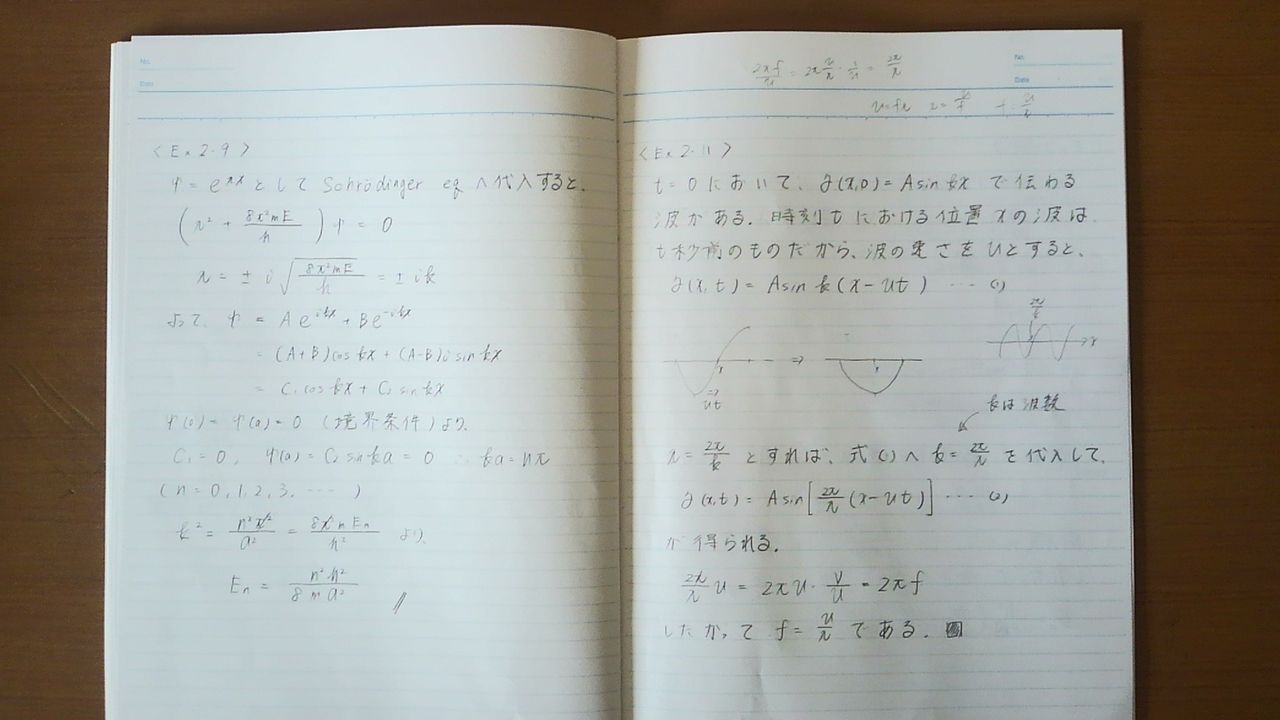 No.
Date
〈Ex 2・9〉
ψ = e^{λx} として Schrödinger eq へ代入すると、
(λ² + 8π²mE/h) ψ = 0
λ = ± i√(8π²mE/h) = ± ik
よって、ψ = A e^{ikx} + B e^{-ikx}
= (A+B)cos kx + (A-B)i sin kx
= C₁ cos kx + C₂ sin kx
ψ(0) = ψ(a) = 0 (境界条件) より、
C₁ = 0, ψ(a) = C₂ sin ka = 0 ∴ ka = nπ
(n = 0, 1, 2, 3, ……)
k² = n²π²/a² = 8π²mEn/h² より、
En = n²h²/8ma² //
No.
Date
2πf/u = 2π u/λ · 1/u = 2π/λ
u = fλ λ = u/f f = u/λ
〈Ex 2・11〉
t = 0 において、y(x,0) = A sin kx で伝わる
波がある. 時刻 t における位置 x の波は
t 秒前のものだから、波の速さを u とすると、
y(x,t) = A sin k(x - ut) …… (1)
2π/k
x
x
⇒
x
⇒
ut
kは波数
λ = 2π/k とすれば、式(1)へ k = 2π/λ を代入して、
y(x,t) = A sin[2π/λ (x - ut)] …… (2)
が得られる.
2π/λ u = 2πu · ν/u = 2πf
したがって f = u/λ である.